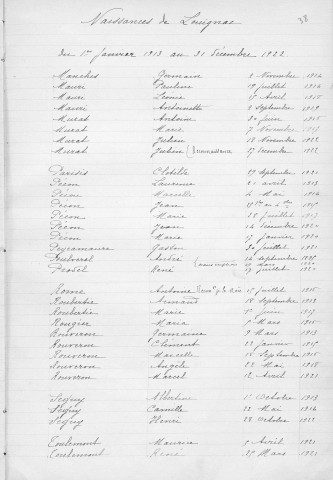 Naissances de
38
du 1er janvier 1913 au 31 Décembre 1922
Manches Germaine 8 Novembre 1914
Mauri Pauline 19 juillet 1914
Mauri 17 Avril 1915
Mauri Antoinette 8 Septembre 1919
Murat Antoine 30 juin 1915
Murat Marie 7 Novembre 1917
Murat Julien 18 Novembre 1922
Murat Julien (Reconnaissance 27 Décembre 1922
Clotilde 27 Septembre 1921
Laurence 21 avril 1913
Marcelle Mai 1914
Jean
Marie 28 juillet 1917
Jean 14 Décembre
Maria 17 janvier 1920
Peyramaure Gaston 30 juillet 1921
André 14 Septembre
René 19 juillet
Rome Antoine 15 juillet 1915
Roubertie Armand 18 Septembre 1913
Roubertie Marie juin 1917
Rougier Maria Mars 1915
Rouveron Germaine 9 Mars 1913
Rouveron Clément 22 janvier 1917
Rouveron Marcelle 16 Septembre 1915
Rouveron Angèle 22 Mai 1918
Rouveron Marcel 12 Avril 1921
Seguy Albertine 1er Octobre 1913
Seguy Camille 22 Mai 1914
Seguy Henri 28 Octobre 1922
Toulemont Maurice 9 Avril 1921
Toulemont René 29 Mars 1921